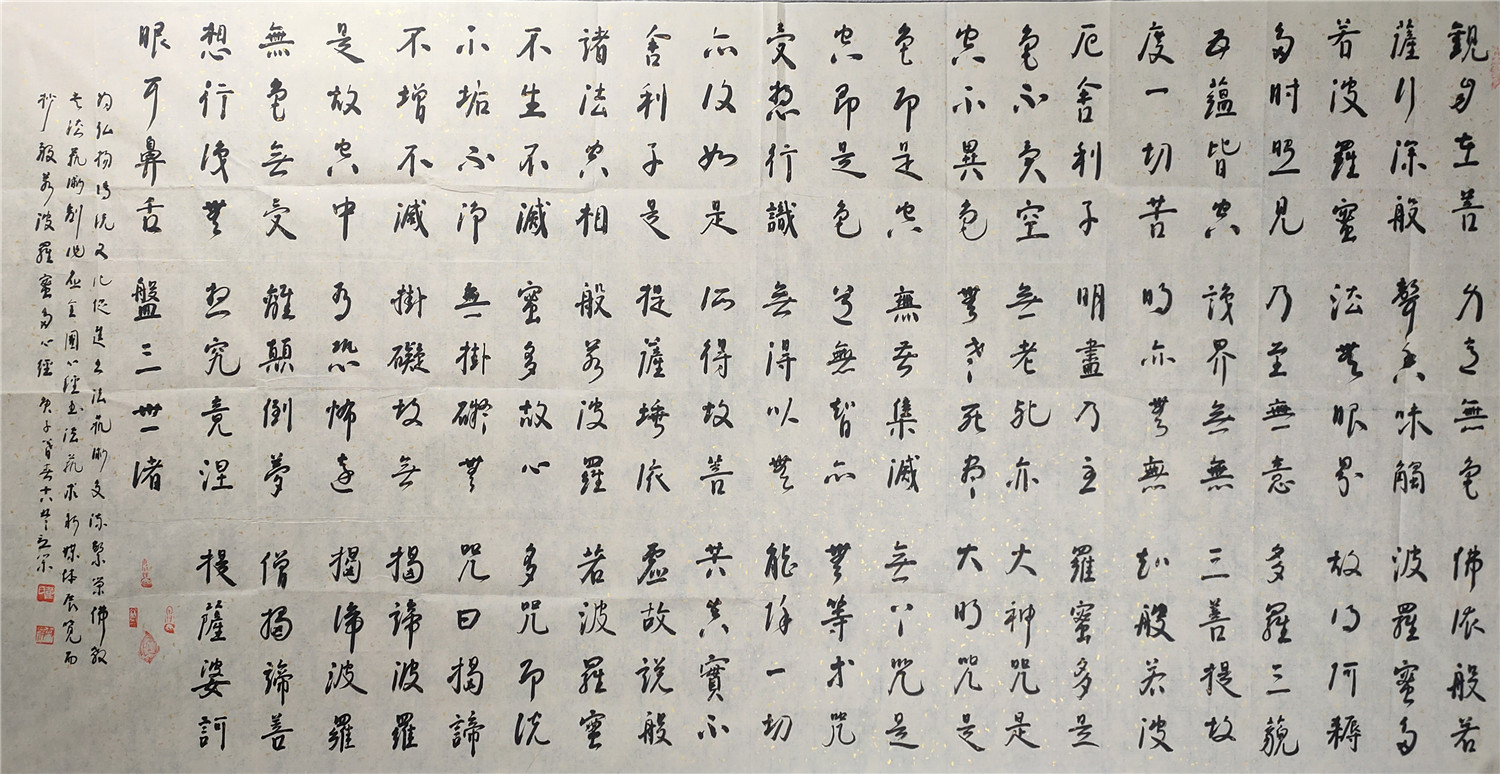 觀自在菩
薩行深般
若波羅蜜
多時照見
五蘊皆空
度一切苦
厄舍利子
色不異空
空不異色
色即是空
空即是色
受想行識
亦復如是
舍利子是
諸法空相
不生不滅
不垢不淨
不增不減
是故空中
無色無受
想行識無
眼耳鼻舌
身意無色
聲香味觸
法無眼界
乃至無意
識界無無
明亦無無
明盡乃至
無老死亦
無老死盡
無苦集滅
道無智亦
無得以無
所得故菩
提薩埵依
般若波羅
蜜多故心
無掛礙無
掛礙故無
有恐怖遠
離顛倒夢
想究竟涅
盤三世諸
佛依般若
波羅蜜多
故得阿耨
多羅三藐
三菩提故
知般若波
羅蜜多是
大神咒是
大明咒是
無上咒是
無等等咒
能除一切
苦真實不
虛故說般
若波羅蜜
多咒即說
咒曰揭諦
揭諦波羅
揭諦波羅
僧揭諦菩
提薩婆訶
為弘揚傳統文化促進書法藝術交流繁榮佛教
書法藝術創作應全國心經書法新媒體展覽而
抄般若波羅蜜多心經 庚子暮春